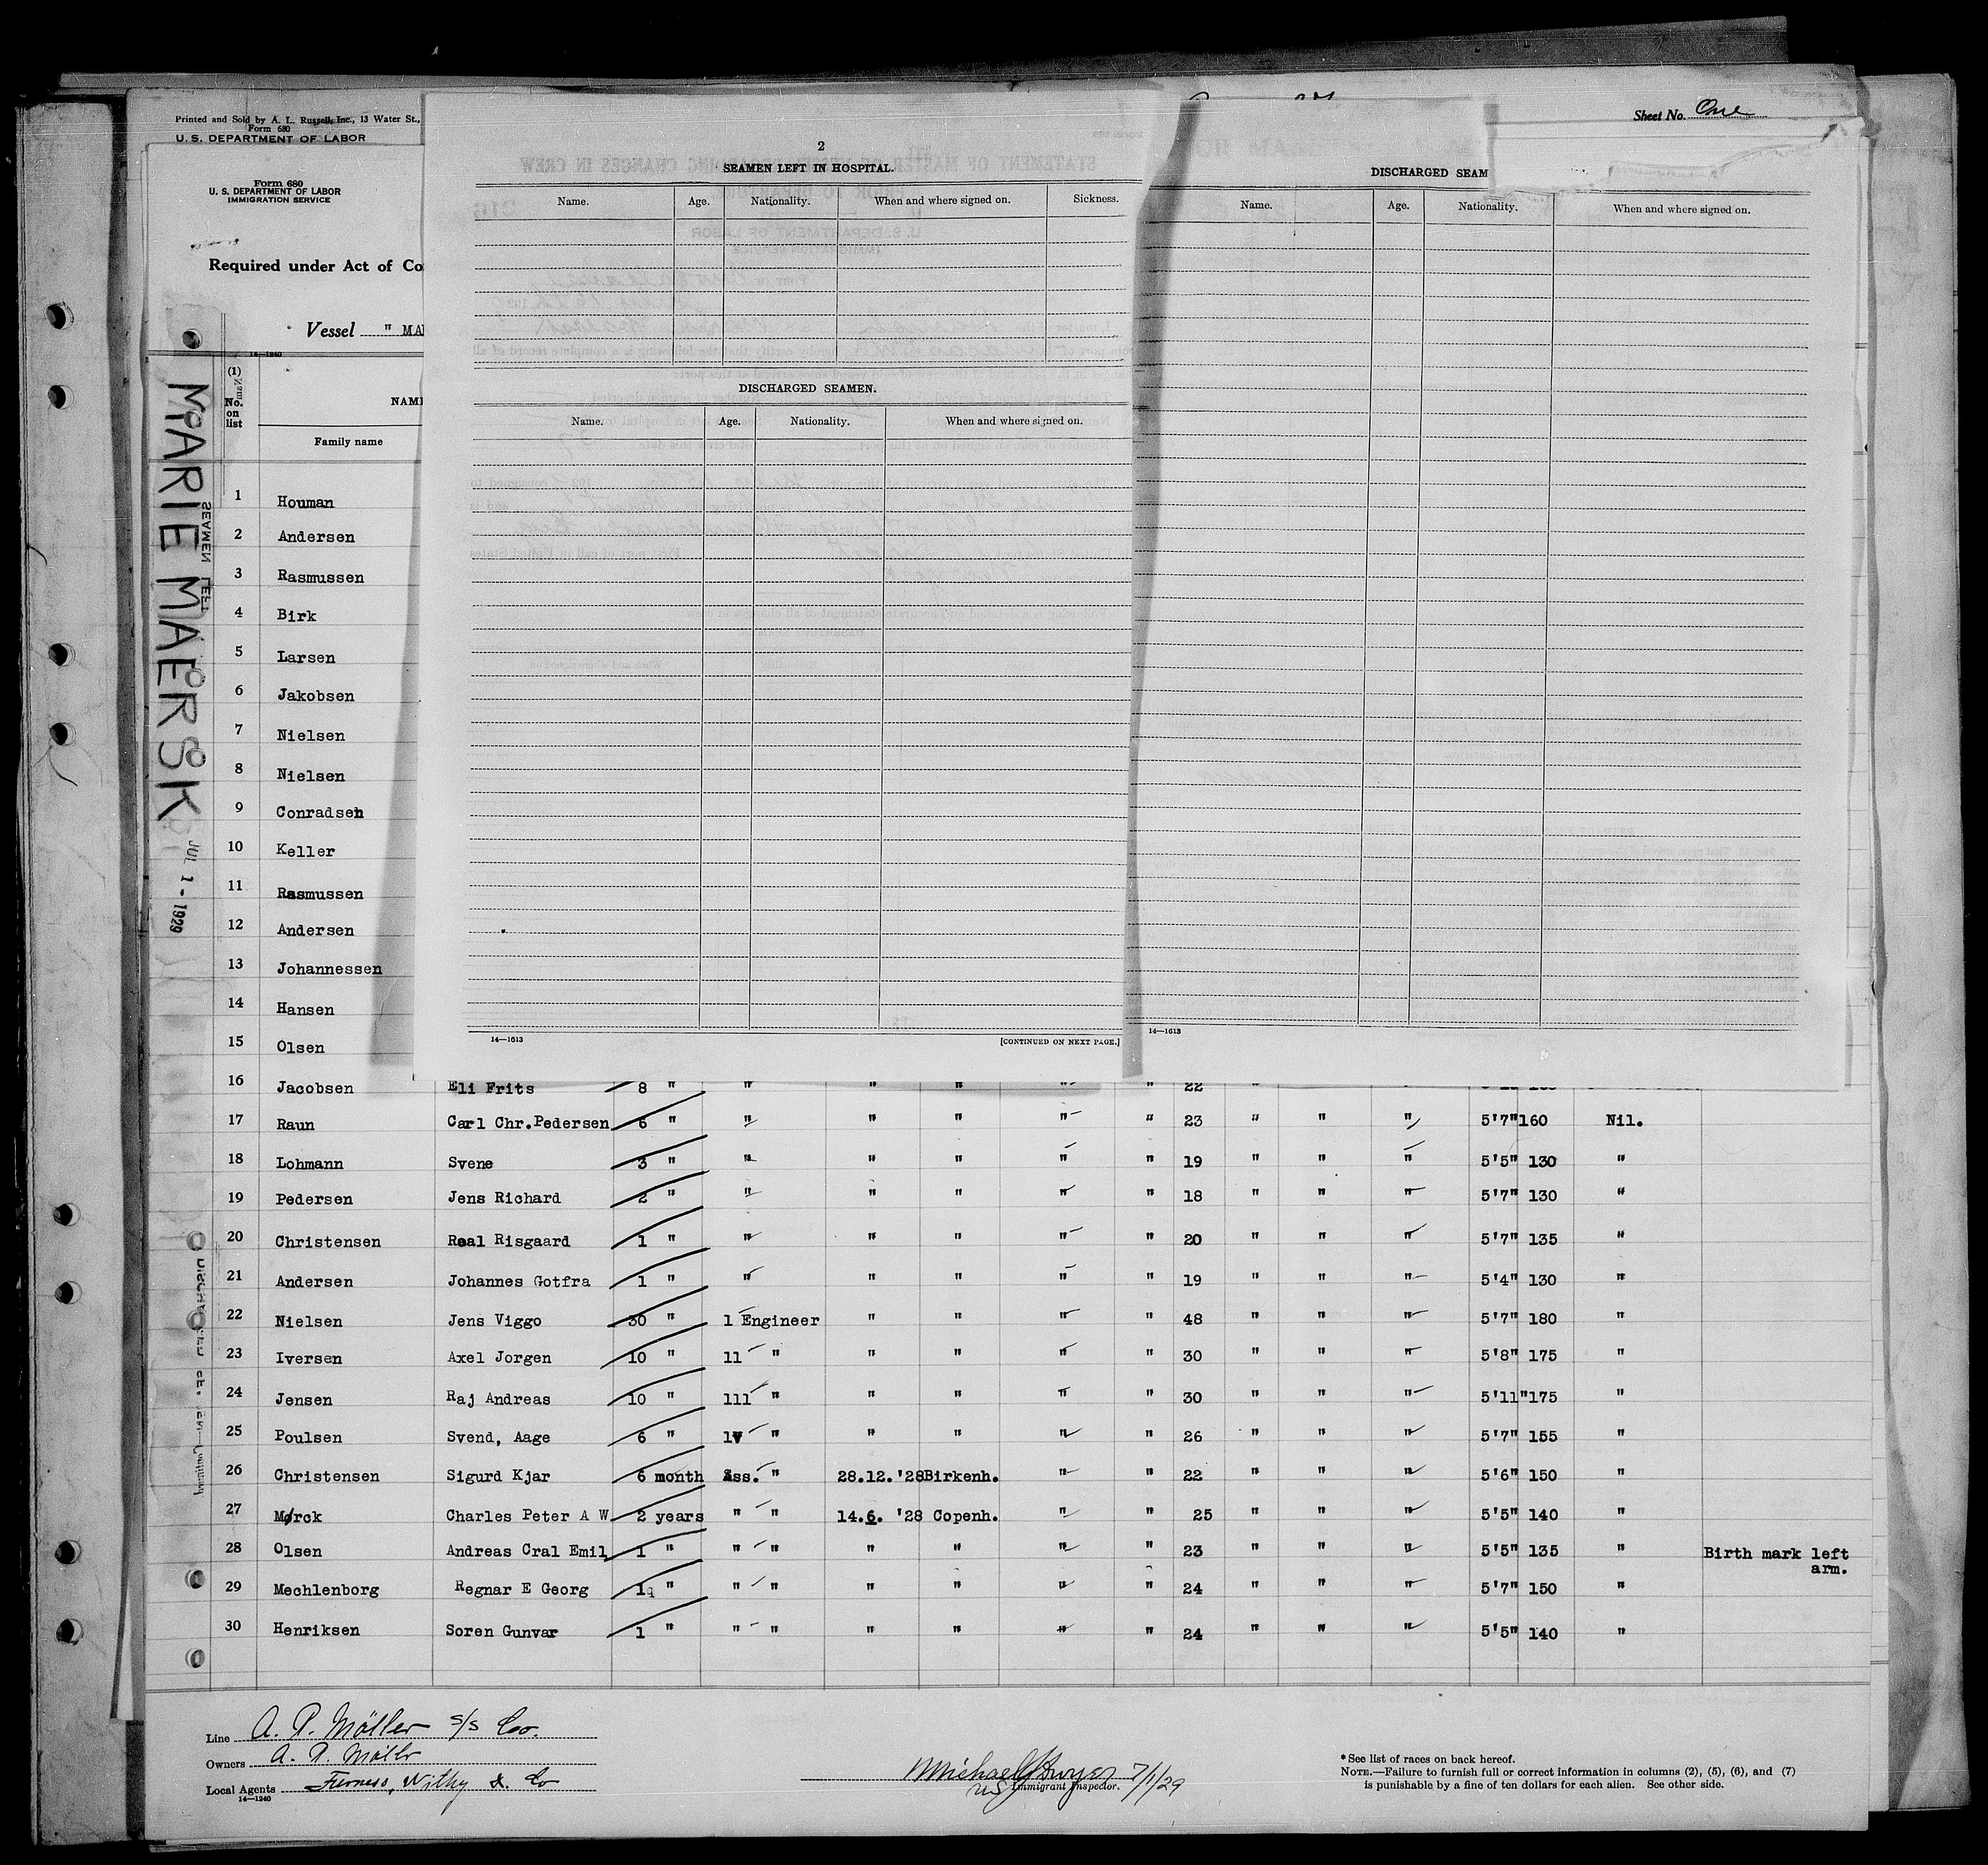 Printed and Sold by A. L. Russell, Inc., 13 Water St.,
Form 680
U.S. DEPARTMENT OF LABOR
Sheet No. One
Form 680
U. S. DEPARTMENT OF LABOR
IMMIGRATION SERVICE
Required under Act of Co
Vessel " MA
14—1240
(1)
No. on list
NAM
Family name
MARIE MAERSK
SEAMEN LEFT
JUL 1 - 1929
2
SEAMEN LEFT IN HOSPITAL.
Name. Age. Nationality. When and where signed on. Sickness.
DISCHARGED SEAMEN.
Name. Age. Nationality. When and where signed on.
14—1613
[CONTINUED ON NEXT PAGE.]
DISCHARGED SEAM
Name. Age. Nationality. When and where signed on.
14—1613
1 Houman
2 Andersen
3 Rasmussen
4 Birk
5 Larsen
6 Jakobsen
7 Nielsen
8 Nielsen
9 Conradsen
10 Keller
11 Rasmussen
12 Andersen
13 Johannessen
14 Hansen
15 Olsen
16 Jacobsen Eli Frits 8 " " " " " " 22 " "
17 Raun Carl Chr.Pedersen 6 " " " " " " 23 " " " 5'7" 160 Nil.
18 Lohmann Svene 3 " " " " " " 19 " " " 5'5" 130 "
19 Pedersen Jens Richard 2 " " " " " " 18 " " " 5'7" 130 "
20 Christensen Roal Risgaard 1 " " " " " " 20 " " " 5'7" 135 "
21 Andersen Johannes Gotfra 1 " " " " " " 19 " " " 5'4" 130 "
22 Nielsen Jens Viggo 30 " 1 Engineer " " " " 48 " " " 5'7" 180 "
23 Iversen Axel Jorgen 10 " 11 " " " " " 30 " " " 5'8" 175 "
24 Jensen Raj Andreas 10 " 111 " " " " " 30 " " " 5'11" 175 "
25 Poulsen Svend, Aage 6 " 1V " " " " " 26 " " " 5'7" 155 "
26 Christensen Sigurd Kjar 6 month Ass. " 28.12.'28 Birkenh. " " 22 " " " 5'6" 150 "
27 Mørck Charles Peter A W 2 years " " 14.6. '28 Copenh. " " 25 " " " 5'5" 140 "
28 Olsen Andreas Cral Emil 1 " " " " " " " 23 " " " 5'5" 135 " Birth mark left arm.
29 Mechlenborg Regnar E Georg 1 " " " " " " " 24 " " " 5'7" 150 "
30 Henriksen Soren Gunvar 1 " " " " " " " 24 " " " 5'5" 140 "
Line A. P. Möller S/S Co.
Owners A. P. Möller
Local Agents Furness, Withy & Co
14—1240
Michael J Dwyer 7/1/29
US Immigrant Inspector.
* See list of races on back hereof.
NOTE.—Failure to furnish full or correct information in columns (2), (5), (6), and (7)
is punishable by a fine of ten dollars for each alien. See other side.